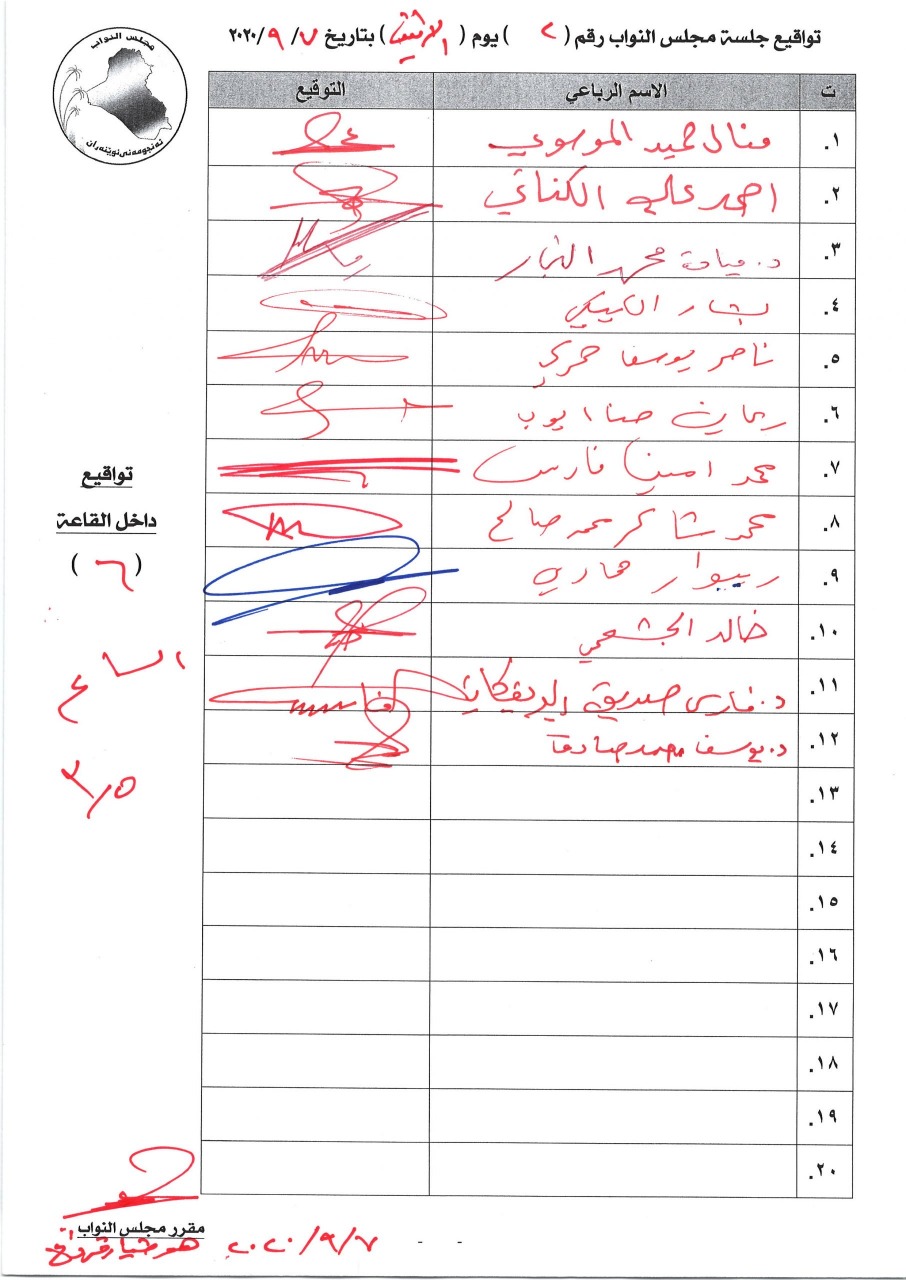 تواقيع جلسة مجلس النواب رقم ( ٢ ) يوم ( الاثنين ) بتاريخ ٧ / ٩ /٢٠٢٠
مجلس النواب
ئەنجومەنی نوێنەران
ت الاسم الرباعي التوقيع
١. منال حميد الموسوي
٢. احمد علي الكناني
٣. د. ميادة محمد النجار
٤. بشار الكيكي
٥. ناصر يوسف
٦. ريحان حنا ايوب
٧. محمد امين فارس
٨. محمد شاكر محمد صالح
٩. ريبوار هادي
١٠. خالد الجشعمي
١١. د. فارس صديق البريفكاني
١٢. د. يوسف محمد صادق
١٣.
١٤.
١٥.
١٦.
١٧.
١٨.
١٩.
٢٠.
تواقيع
داخل القاعة
( ٦ )
٣/٥
مقرر مجلس النواب
٢٠٢٠/٩/٧